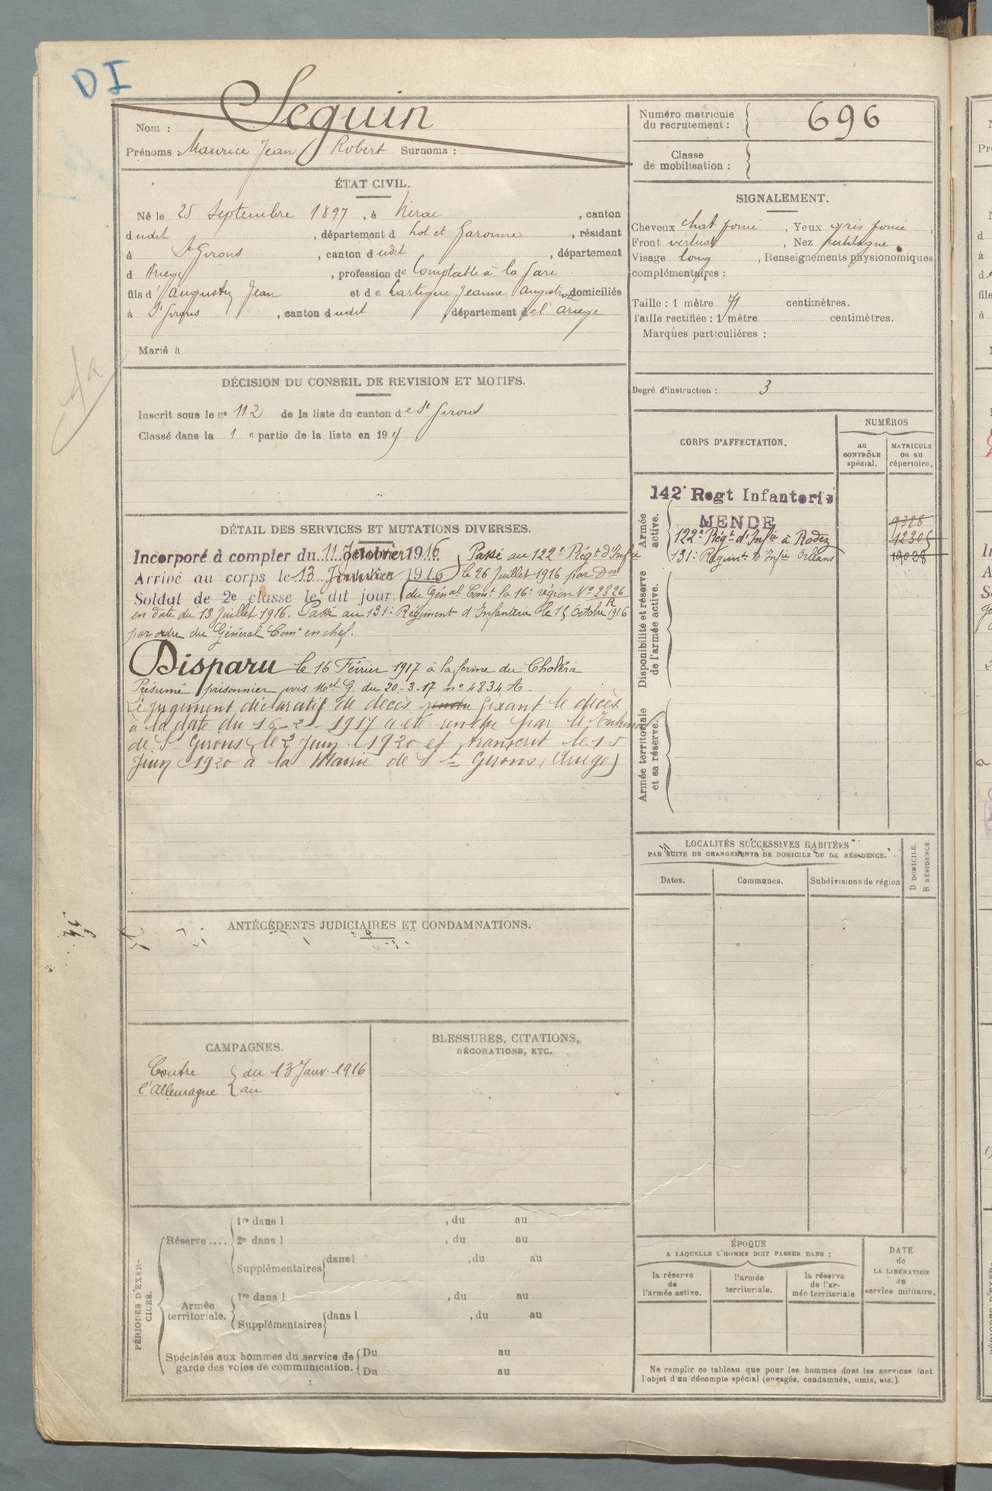 DI
Nom : Seguin
Prénoms : Maurice Jean Robert Surnoms :
Numéro matricule du recrutement : 696
Classe de mobilisation :
ÉTAT CIVIL.
Né le 25 Septembre 1897, à Nérac, canton
dudit, département d Lot et Garonne, résidant
à St Girons, canton dudit, département
d Ariège, profession de Comptable à la gare
fils d'Augustin Jean et de Lartigue Jeanne, domiciliés
à St Girons, canton dudit, département de l'Ariège
Marié à
SIGNALEMENT.
Cheveux chat foncé, Yeux gris foncé
Front vertical, Nez rectiligne
Visage long, Renseignements physionomiques
complémentaires :
Taille : 1 mètre 71 centimètres.
Taille rectifiée : 1 mètre centimètres.
Marques particulières :
Degré d'instruction : 3
DÉCISION DU CONSEIL DE REVISION ET MOTIFS.
Inscrit sous le n° 112 de la liste du canton de St Girons
Classé dans la 1 e partie de la liste en 191
DÉTAIL DES SERVICES ET MUTATIONS DIVERSES.
Incorporé à compter du 11 1916 Passé au 122e Régt d'Infie
Arrivé au corps le 13 Janvier 1916 le 26 Juillet 1916 par Don
Soldat de 2e classe le dit jour. du Génal Comt la 16e région N° 2826
en date du 13 Juillet 1916. Passé au 131e Régiment d'Infanterie le 15 Octobre 1916
par ordre du Général Comt en chef.
Disparu le 16 Février 1917 à la ferme du Choléra
Présumé prisonnier avis Mel G. du 20-3-17 n° 4834 A.
Le jugement déclaratif de décès rendu fixant le décès
à la date du 16-2-1917 a été rendu par le Tribunal
de St Girons, le 2 Juin 1920 et transcrit le 15
Juin 1920 à la Mairie de St Girons (Ariège)
CORPS D'AFFECTATION.
NUMÉROS
au CONTRÔLE spécial.
MATRICULE ou au répertoire.
Armée active.
142e Regt Infanterie
MENDE
122e Régt d'Infie à Rodez
131e Régiment d'Infie Orléans
Disponibilité et réserve de l'armée active.
Armée territoriale et sa réserve.
LOCALITÉS SUCCESSIVES HABITÉES
PAR SUITE DE CHANGEMENTS DE DOMICILE OU DE RÉSIDENCE.
Dates.
Communes.
Subdivisions de région
D DOMICILE.
R RÉSIDENCE.
ANTÉCÉDENTS JUDICIAIRES ET CONDAMNATIONS.
CAMPAGNES.
Contre l'Allemagne { du 13 Janv 1916
au
BLESSURES, CITATIONS,
DÉCORATIONS, ETC.
PÉRIODES D'EXERCICES.
Réserve....
1re dans l , du au
2e dans l , du au
Supplémentaires dans l , du au
Armée territoriale.
1re dans l , du au
Supplémentaires dans l , du au
Spéciales aux hommes du service de garde des voies de communication.
Du au
Du au
ÉPOQUE
A LAQUELLE L'HOMME DOIT PASSER DANS :
la réserve de l'armée active.
l'armée territoriale.
la réserve de l'armée territoriale
DATE de LA LIBÉRATION du service militaire.
Ne remplir ce tableau que pour les hommes dont les services font
l'objet d'un décompte spécial (engagés, condamnés, omis, etc.).